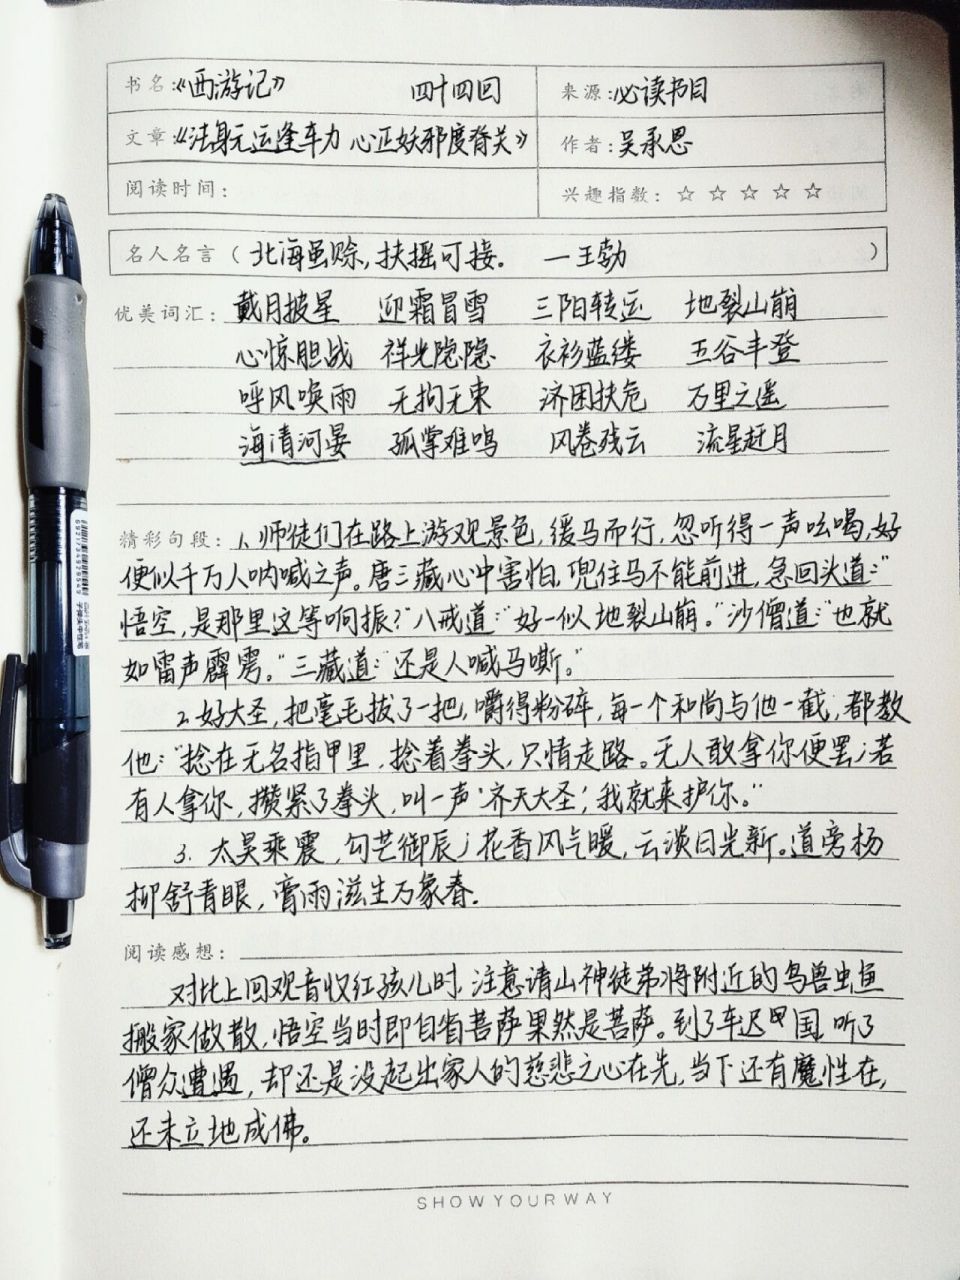 书名:《西游记》 四十四回 来源:必读书目
文章:《法身元运逢车力 心正妖邪度脊关》 作者:吴承恩
阅读时间: 兴趣指数:☆☆☆☆☆
名人名言(北海虽赊,扶摇可接. —王勃)
优美词汇: 戴月披星 迎霜冒雪 三阳转运 地裂山崩
心惊胆战 祥光隐隐 衣衫蓝缕 五谷丰登
呼风唤雨 无拘无束 济困扶危 万里之遥
海清河晏 孤掌难鸣 风卷残云 流星赶月
精彩句段: 1.师徒们在路上游观景色,缓马而行,忽听得一声吆喝,好
便似千万人呐喊之声。唐三藏心中害怕,兜住马不能前进,急回头道:“
悟空,是那里这等响振?”八戒道:“好一似地裂山崩。”沙僧道:“也就
如雷声霹雳。”三藏道:“还是人喊马嘶。”
2.好大圣,把毫毛拔了一把,嚼得粉碎,每一个和尚与他一截,都教
他:“捻在无名指甲里,捻着拳头,只情走路。无人敢拿你便罢;若
有人拿你,攒紧了拳头,叫一声‘齐天大圣’,我就来护你。”
3. 太昊乘震,勾芒御辰;花香风气暖,云淡日光新。道旁杨
柳舒青眼,膏雨滋生万象春.
阅读感想:
对比上回观音收红孩儿时,注意请山神徒弟将附近的鸟兽虫鱼
搬家做散,悟空当时即自省菩萨果然是菩萨。到了车迟国,听了
僧众遭遇,却还是没起出家人的慈悲之心在先,当下还有魔性在,
还未立地成佛。
SHOW YOUR WAY
6921734979549